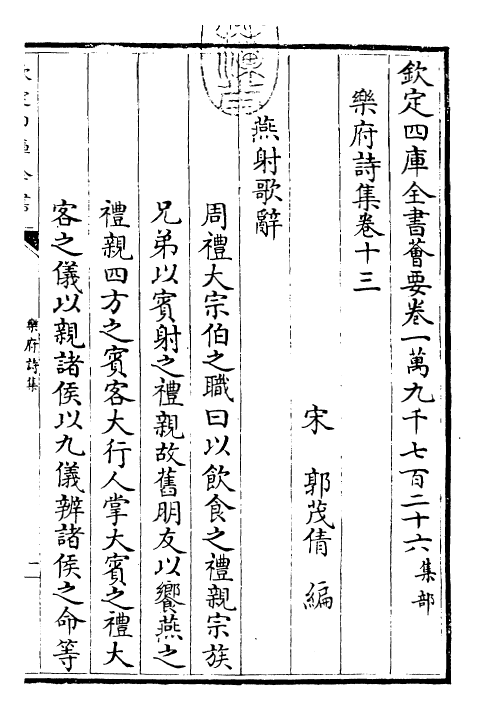 欽定四庫全書薈要卷一萬九千七百二十六集部
樂府詩集卷十三
宋 郭茂倩 編
燕射歌辭
周禮大宗伯之職曰以飲食之禮親宗族
兄弟以賓射之禮親故舊朋友以饗燕之
禮親四方之賓客大行人掌大賓之禮大
客之儀以親諸侯以九儀辨諸侯之命等
樂府詩集